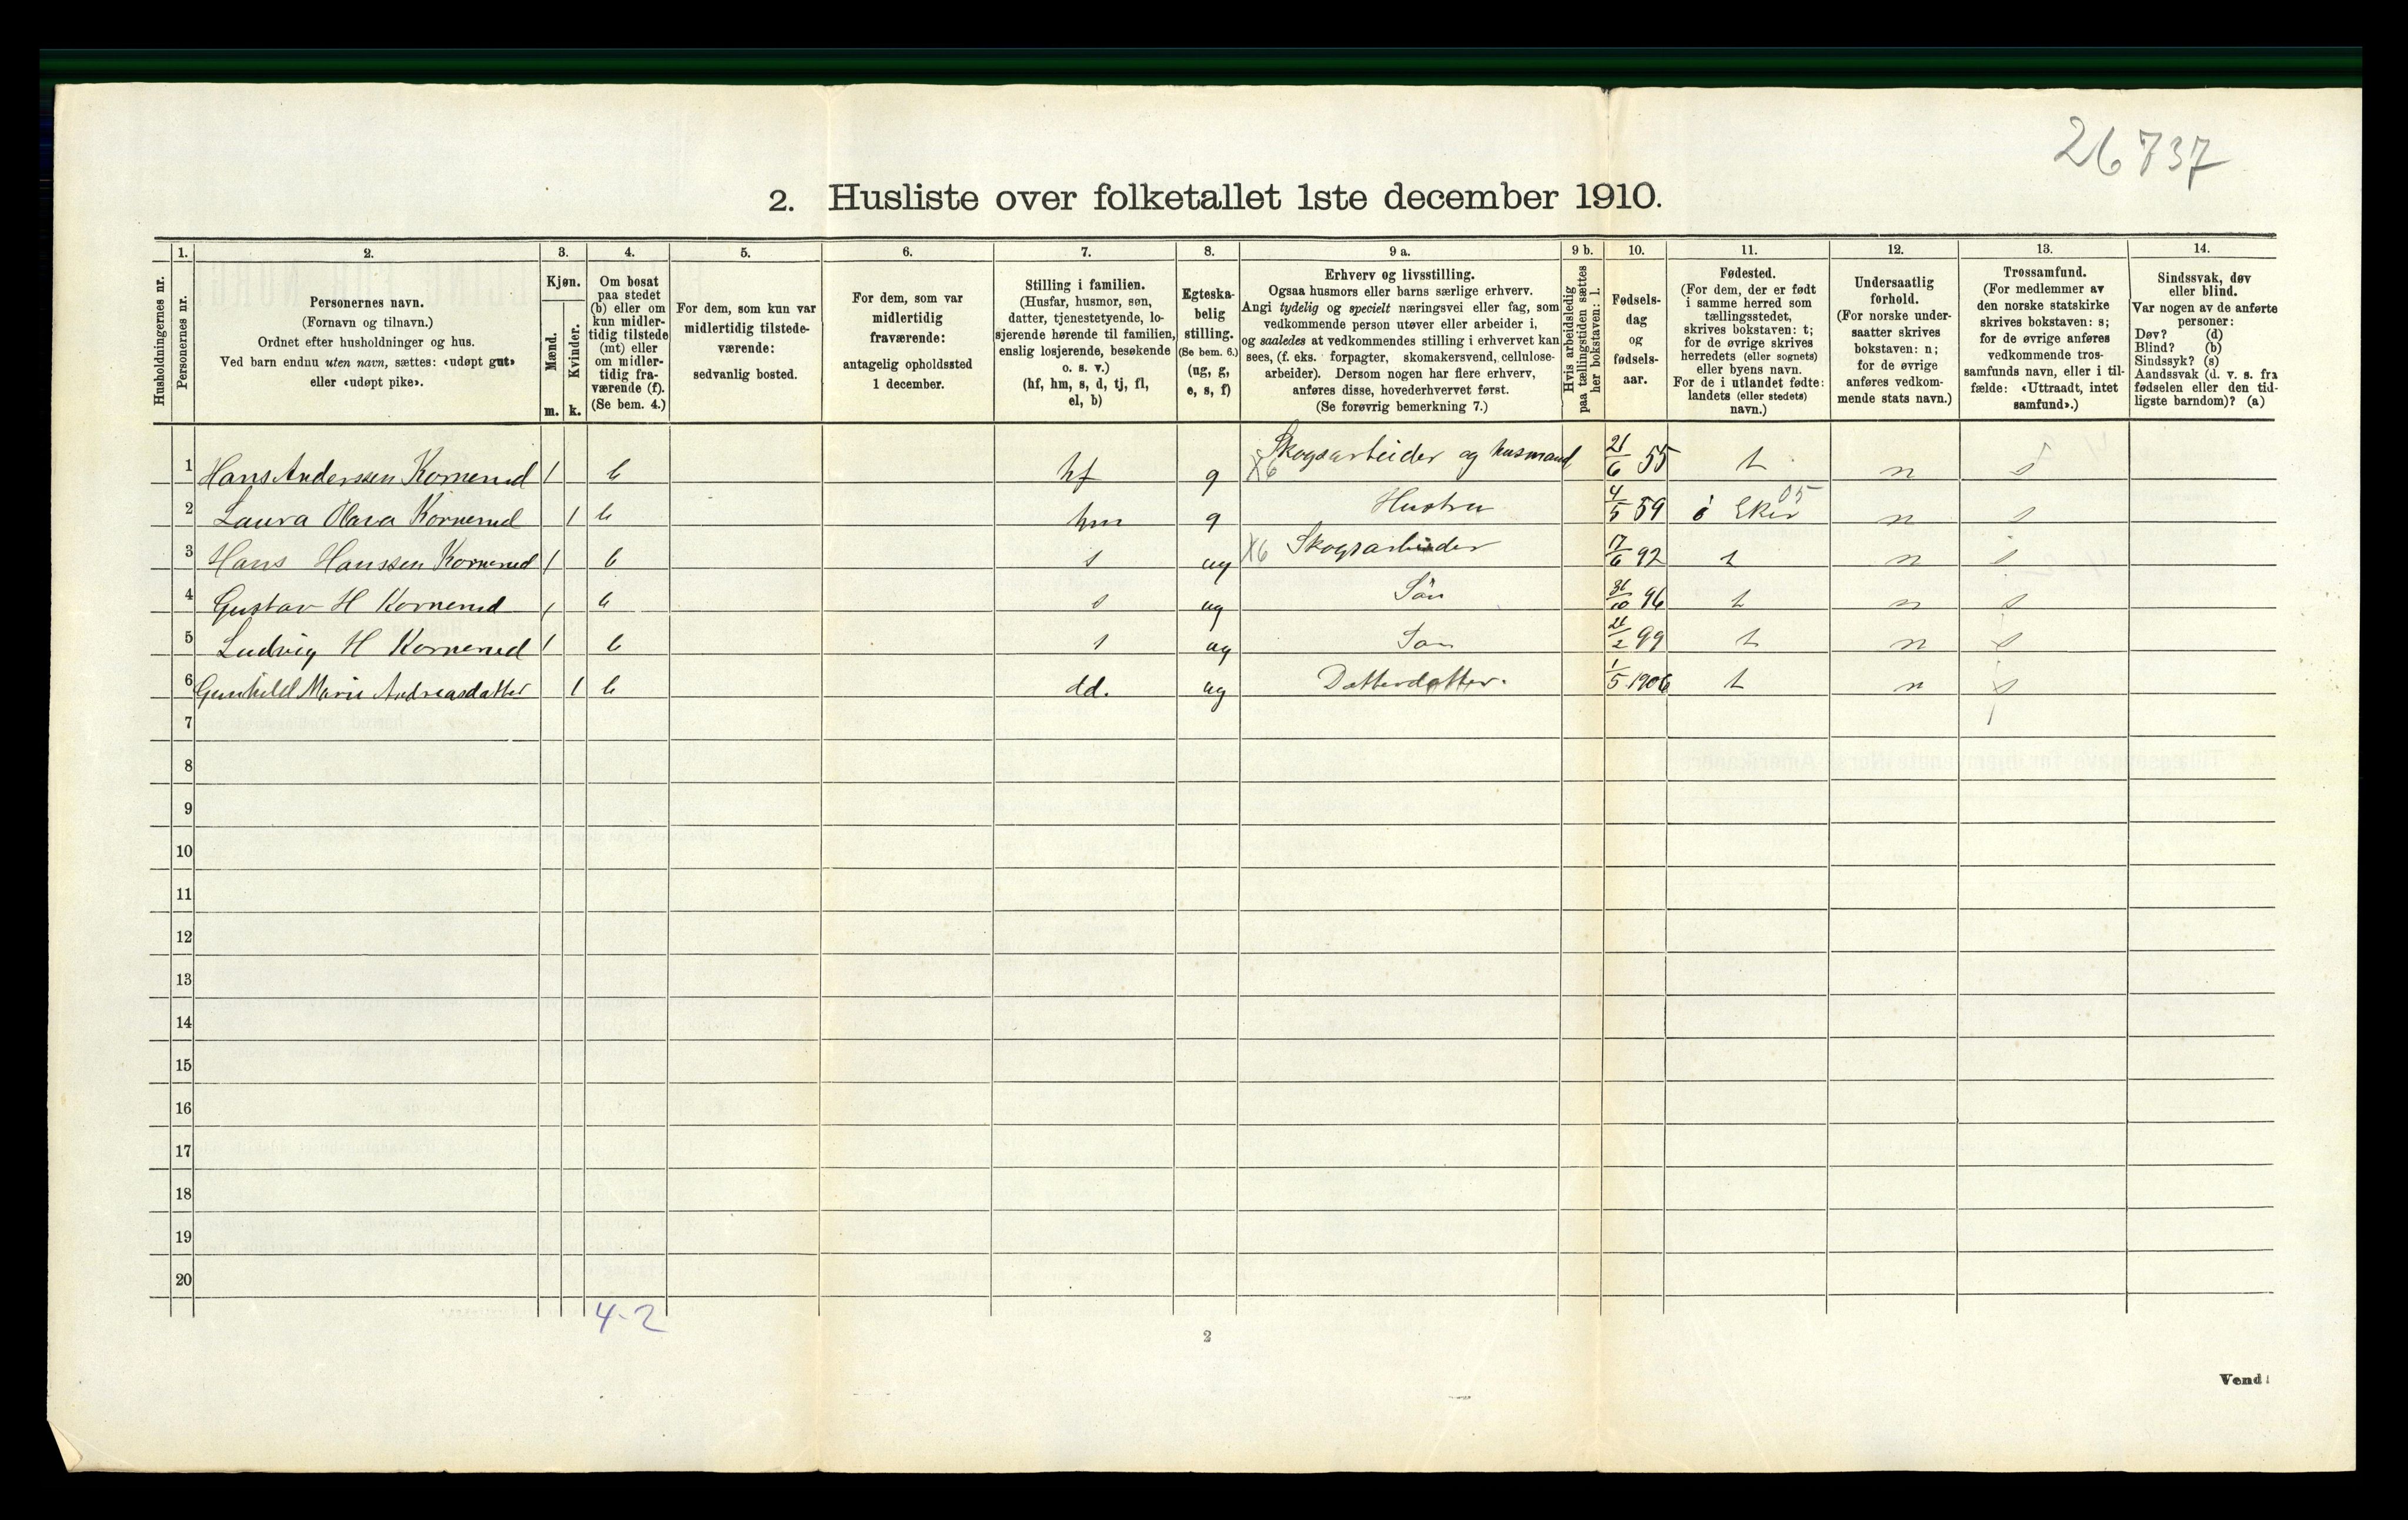 26737
2. Husliste over folketallet 1ste december 1910.
Husholdningernes nr.
1.
Personernes nr.
2.
Personernes navn.
(Fornavn og tilnavn.)
Ordnet efter husholdninger og hus.
Ved barn endnu uten navn, sættes: «udøpt gut»
eller «udøpt pike».
3.
Kjøn.
Mænd.
Kvinder.
m. k.
4.
Om bosat
paa stedet
(b) eller om
kun midler-
tidig tilstede
(mt) eller
om midler-
tidig fra-
værende (f).
(Se bem. 4.)
5.
For dem, som kun var
midlertidig tilstede-
værende:
sedvanlig bosted.
6.
For dem, som var
midlertidig
fraværende:
antagelig opholdssted
1 december.
7.
Stilling i familien.
(Husfar, husmor, søn,
datter, tjenestetyende, lo-
sjerende hørende til familien,
enslig losjerende, besøkende
o. s. v.)
(hf, hm, s, d, tj, fl,
el, b)
8.
Egteska-
belig
stilling.
(Se bem. 6.)
(ug, g,
e, s, f)
9 a.
Erhverv og livsstilling.
Ogsaa husmors eller barns særlige erhverv.
Angi tydelig og specielt næringsvei eller fag, som
vedkommende person utøver eller arbeider i,
og saaledes at vedkommendes stilling i erhvervet kan
sees, (f. eks. forpagter, skomakersvend, cellulose-
arbeider). Dersom nogen har flere erhverv,
anføres disse, hovederhvervet først.
(Se forøvrig bemerkning 7.)
9 b.
Hvis arbeidsledig
paa tællingstiden sættes
her bokstaven: l.
10.
Fødsels-
dag
og
fødsels-
aar.
11.
Fødested.
(For dem, der er født
i samme herred som
tællingsstedet,
skrives bokstaven: t;
for de øvrige skrives
herredets (eller sognets)
eller byens navn.
For de i utlandet fødte:
landets (eller stedets)
navn.)
12.
Undersaatlig
forhold.
(For norske under-
saatter skrives
bokstaven: n;
for de øvrige
anføres vedkom-
mende stats navn.)
13.
Trossamfund.
(For medlemmer av
den norske statskirke
skrives bokstaven: s;
for de øvrige anføres
vedkommende tros-
samfunds navn, eller i til-
fælde: «Uttraadt, intet
samfund».)
14.
Sindssvak, døv
eller blind.
Var nogen av de anførte
personer:
Døv? (d)
Blind? (b)
Sindssyk? (s)
Aandssvak (d. v. s. fra
fødselen eller den tid-
ligste barndom)? (a)
1 Hans Anderssen Kornerud 1 b hf g X6 Skogsarbeider og husmand 21/6 55 t n s
2 Laura Olava Kornerud 1 b hm g Hustru 4/5 59 ö Eker 05 n s
3 Hans Hanssen Kornerud 1 b s ug X6 Skogsarbeider 17/6 92 t n s
4 Gustav H Kornerud 1 b s ug Sön 31/10 96 t n s
5 Ludvig H Kornerud 1 b s ug Sön 99 t n s
6 Gunhild Marie Andreasdatter 1 b dd. ug Datterdatter. 1/5 1906 t n s
7
8
9
10
11
12
13
14
15
16
17
18
19
20
4-2
2
Vend!